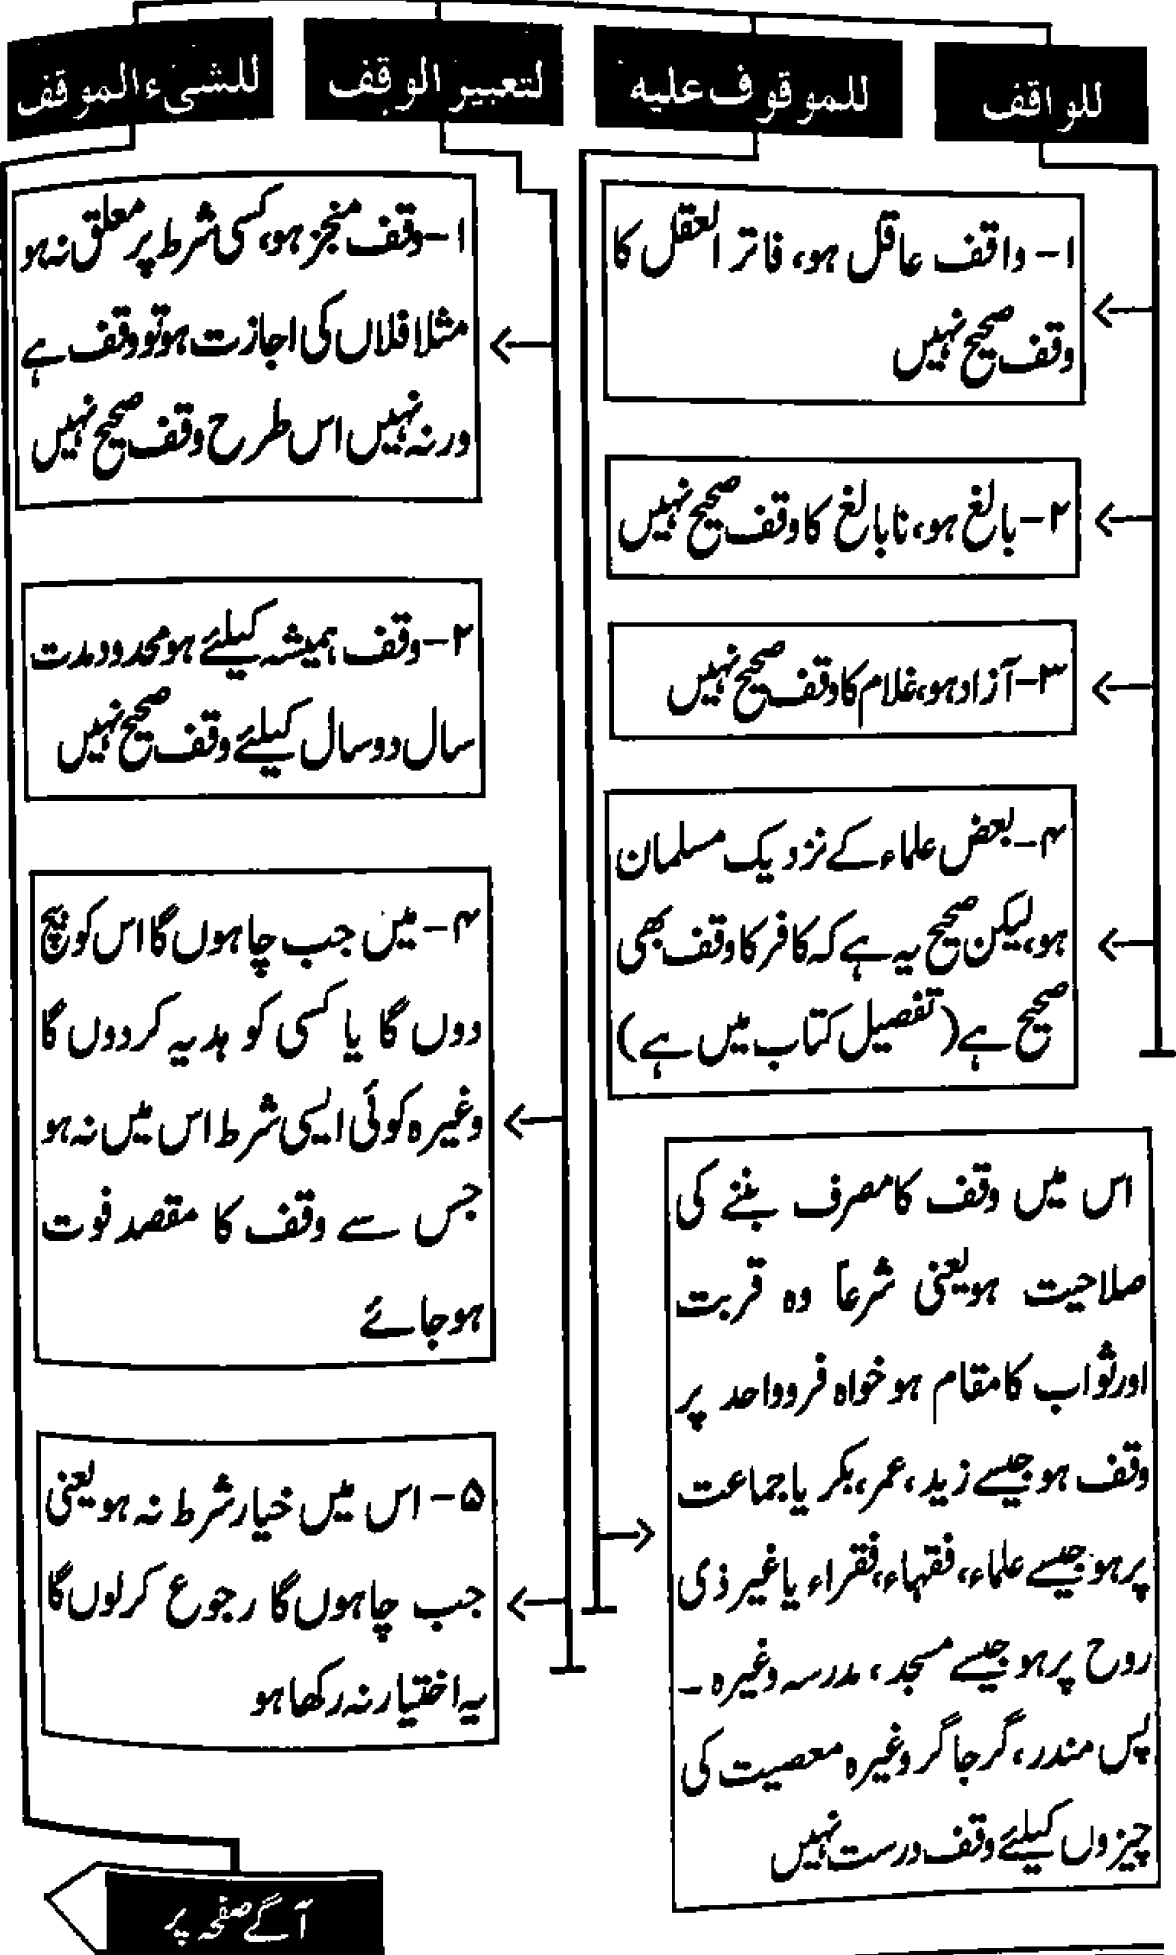 للواقف
للموقوف علیہ
لتعبیر الوقف
للشیء الموقف
۱- واقف عاقل ہو، فاتر العقل کا
وقف صحیح نہیں
۲- بالغ ہو، نابالغ کا وقف صحیح نہیں
۳- آزاد ہو، غلام کا وقف صحیح نہیں
۴- بعض علماء کے نزدیک مسلمان
ہو، لیکن صحیح یہ ہے کہ کافر کا وقف بھی
صحیح ہے (تفصیل کتاب میں ہے)
اس میں وقف کا مصرف بننے کی
صلاحیت ہو یعنی شرعاً وہ قربت
اور ثواب کا مقام ہو خواہ فرد واحد پر
وقف ہو جیسے زید، عمر، بکر یا جماعت
پر ہو جیسے علماء، فقہاء، فقراء یا غیر ذی
روح پر ہو جیسے مسجد، مدرسہ وغیرہ۔
پس مندر، گرجا گر وغیرہ معصیت کی
چیزوں کیلئے وقف درست نہیں
۱- وقف منجز ہو، کسی شرط پر معلق نہ ہو
مثلا فلاں کی اجازت ہو تو وقف ہے
ورنہ نہیں اس طرح وقف صحیح نہیں
۲- وقف ہمیشہ کیلئے ہو محدود مدت
سال دو سال کیلئے وقف صحیح نہیں
۴- میں جب چاہوں گا اس کو بیچ
دوں گا یا کسی کو ہدیہ کردوں گا
وغیرہ کوئی ایسی شرط اس میں نہ ہو
جس سے وقف کا مقصد فوت
ہو جائے
۵- اس میں خیار شرط نہ ہو یعنی
جب چاہوں گا رجوع کرلوں گا
یہ اختیار نہ رکھا ہو
آگے صفحہ پر